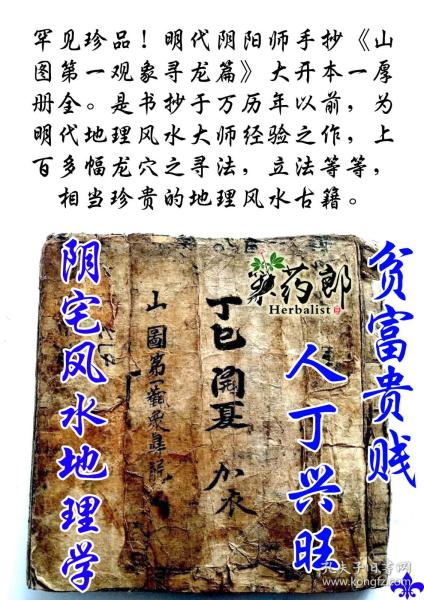 罕见珍品！明代阴阳师手抄《山
图第一观象寻龙篇》大开本一厚
册全。是书抄于万历年以前，为
明代地理风水大师经验之作，上
百多幅龙穴之寻法，立法等等，
相当珍贵的地理风水古籍。
药郎
Herbalist
贫富贵贱
人丁兴旺
丁巳開夏
山圖第一觀象
阴宅风水地理学
孔夫子旧书网
www.kongfz.com